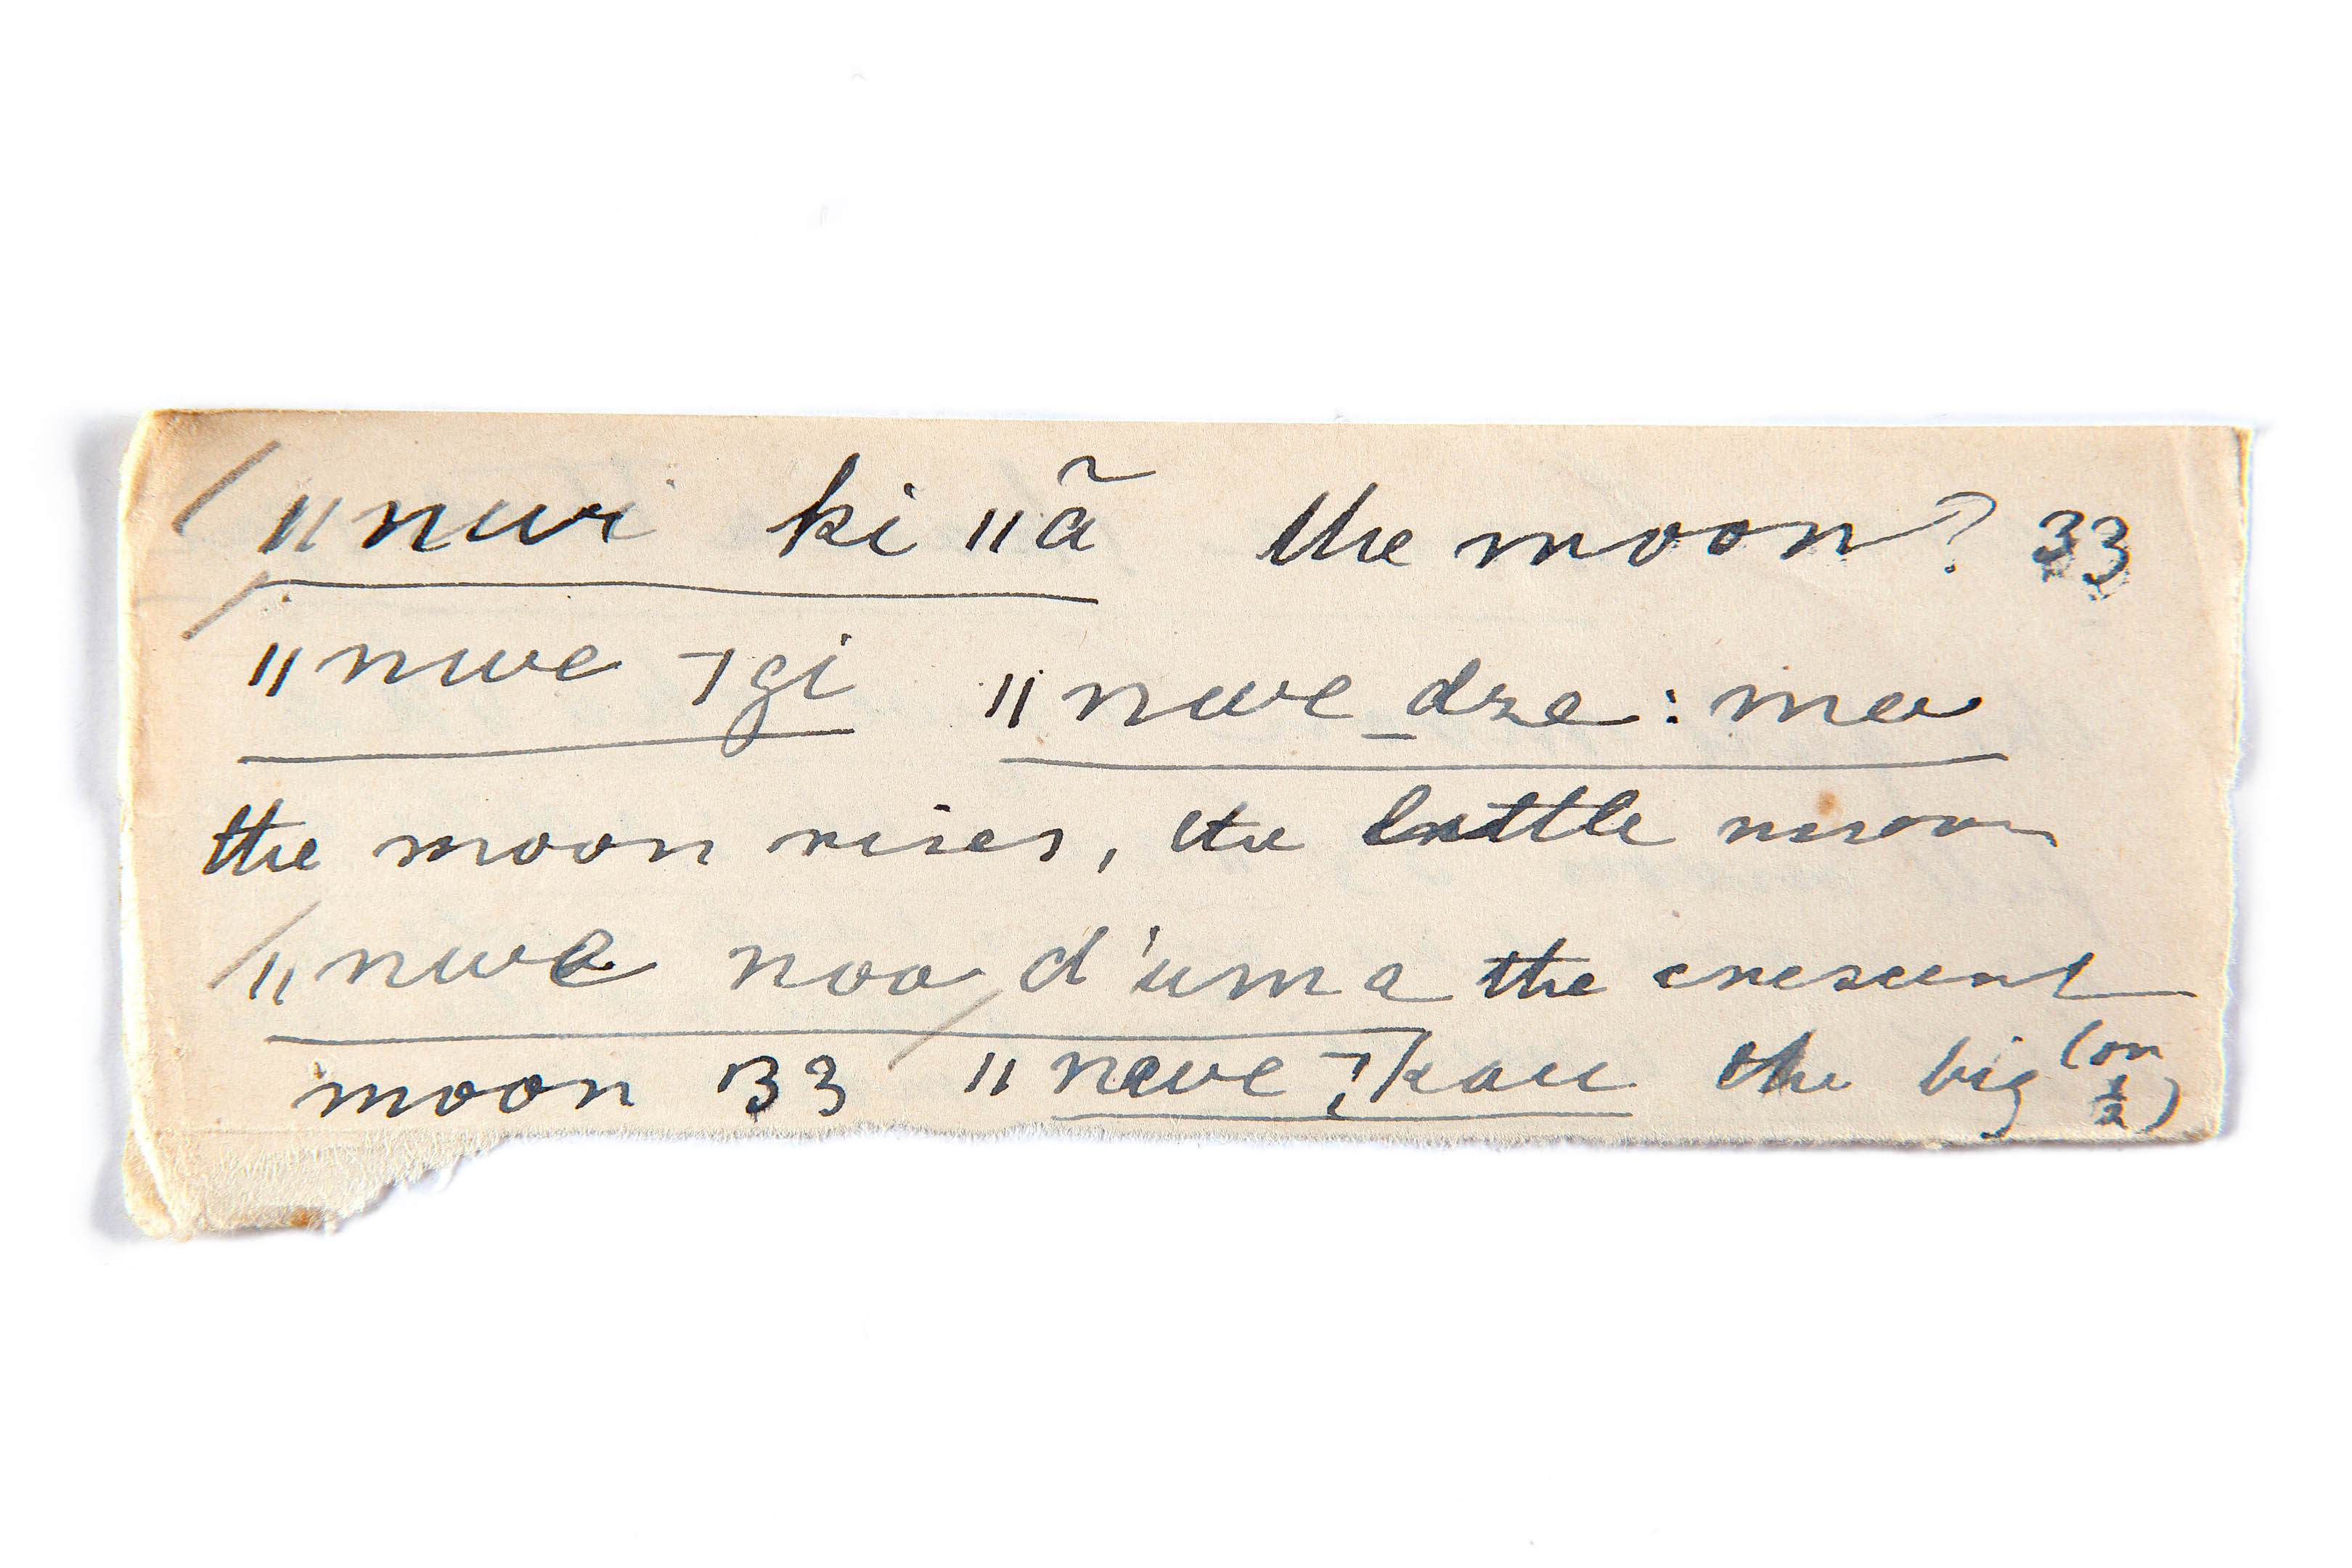 ǁnwi ki ǁã the moon? 33
ǁnwe ㄱgi ǁnwe_dze:ma
the moon rises, the little moon
ǁnwe noa d'uma the crescent
moon 33 ǁnwe the big (on ½)